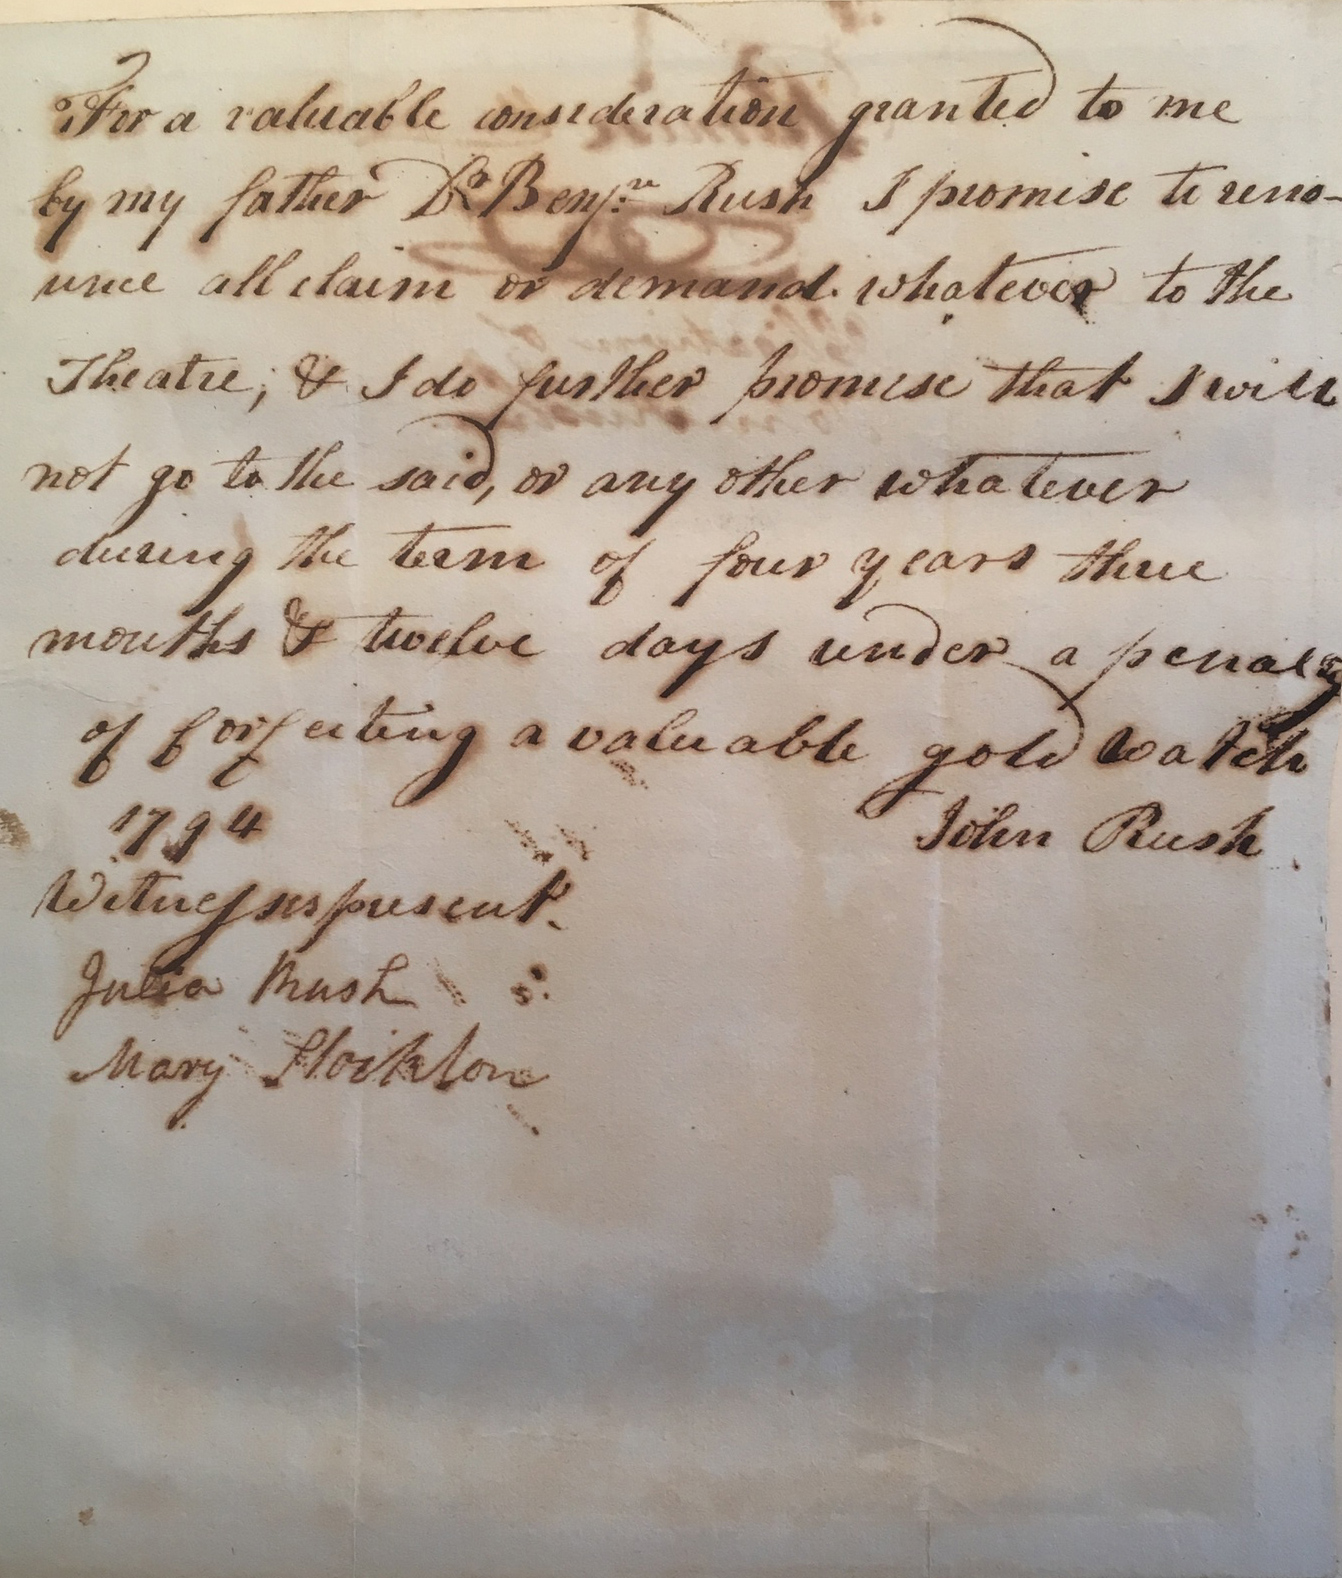 For a valuable consideration granted to me
by my father Dr Benjn Rush I promise to reno-
unce all claim or demand whatever to the
Theatre; & I do further promise that I will
not go to the said, or any other whatever
during the term of four years three
months & twelve days under a penalty
of forfeiting a valuable gold watch
1794 John Rush
Witnesses present.
Julia Rush
Mary Stockton